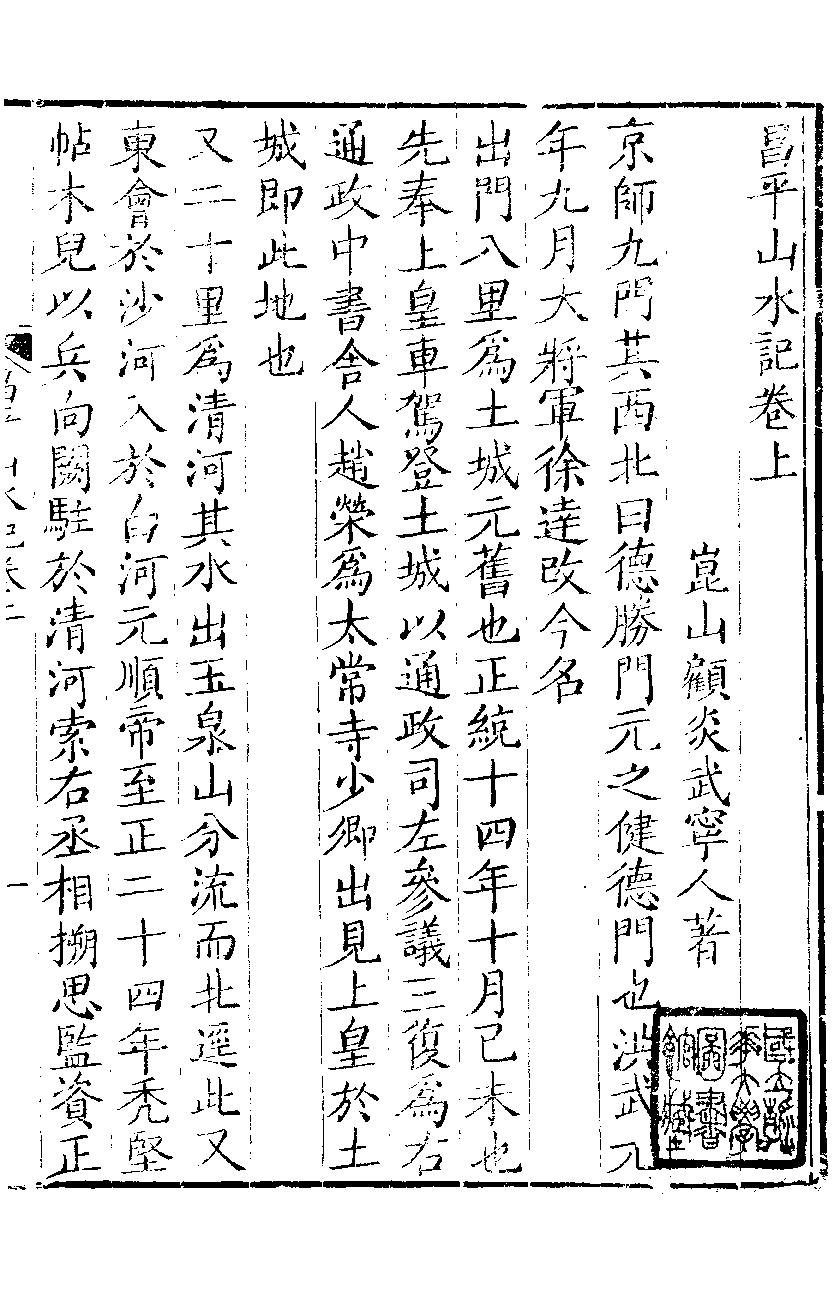 昌平山水記卷上
崑山顧炎武寧人著
京師九門其西北曰德勝門元之健德門也洪武元
年九月大將軍徐達改今名
出門八里爲土城元舊也正統十四年十月己未也
先奉上皇車駕登土城以通政司左參議王復爲右
通政中書舍人趙榮爲太常寺少卿出見上皇於土
城即此地也
又二十里爲清河其水出玉泉山分流而北逕此又
東會於沙河入於白河元順帝至正二十四年禿堅
帖木兒以兵向闕駐於清河索右丞相搠思監資正
山水記卷上
一